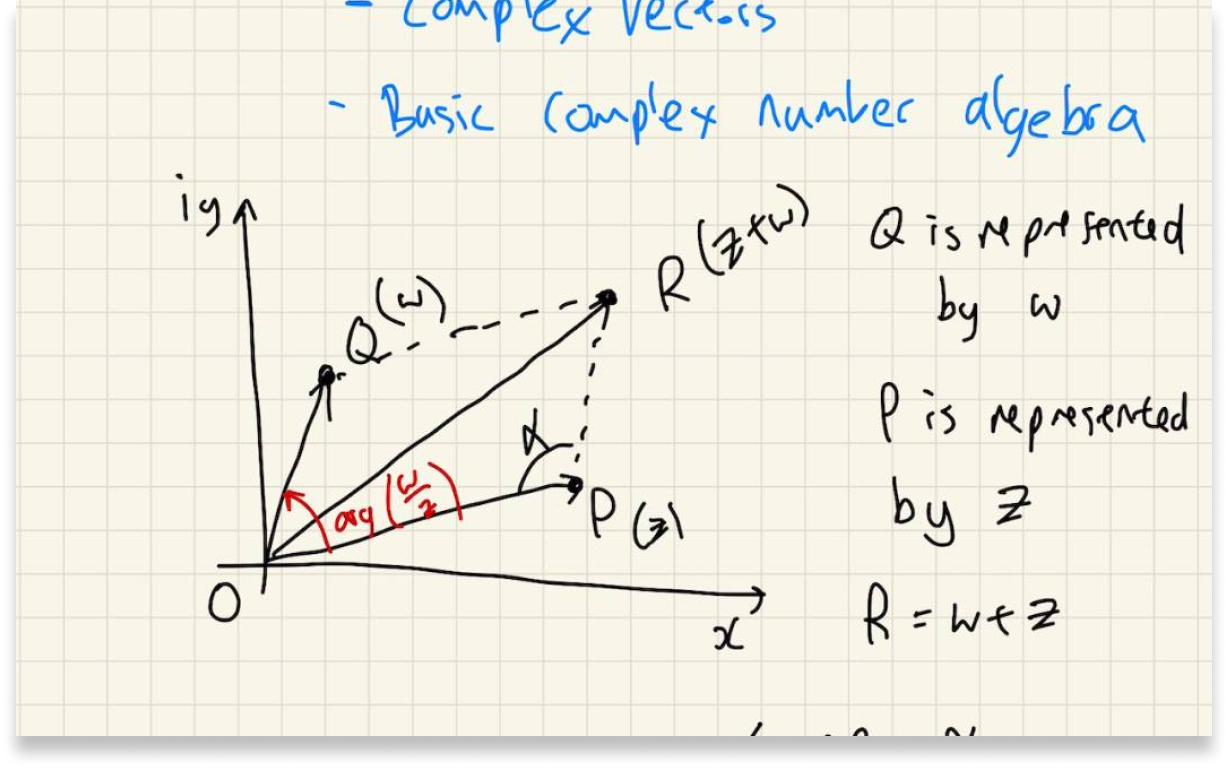 - Complex Vectors
- Basic Complex number algebra
iy
Q (w)
R (z+w)
α
arg (w/z)
P (z)
O
x
Q is represented
by w
P is represented
by z
R = w + z